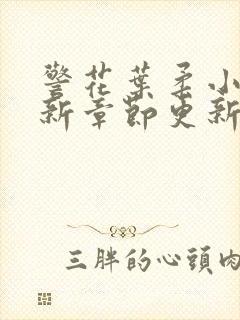 警花葉柔小
新章節更新
三胖的心頭肉